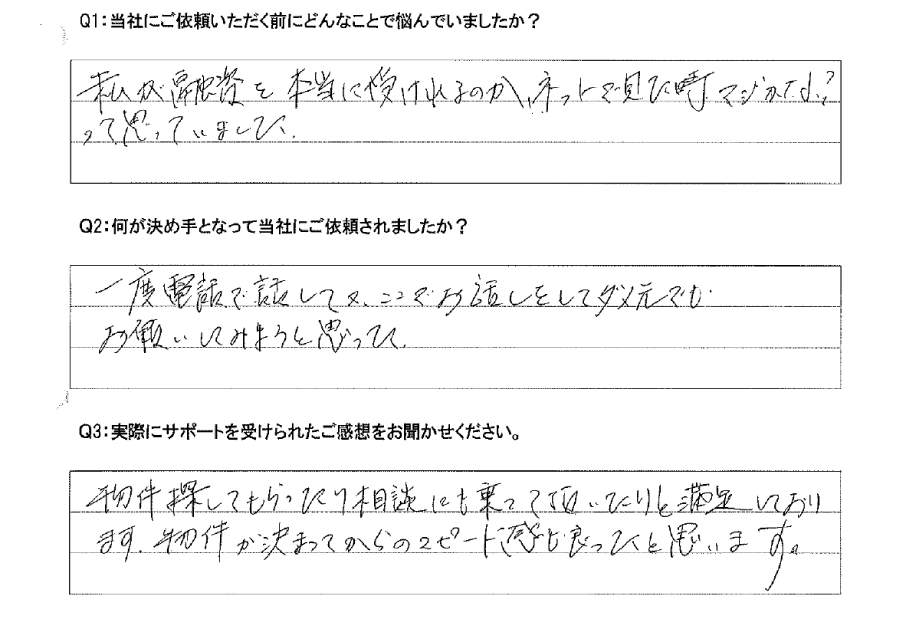 Q1:当社にご依頼いただく前にどんなことで悩んでいましたか？
私が融資を本当に受けれるのか、ネットで見た時マジかな？
って思っていました。
Q2:何が決め手となって当社にご依頼されましたか？
一度電話で話してみ、ここでお話しをしてダメ元でも
お願いしてみようと思って。
Q3:実際にサポートを受けられたご感想をお聞かせください。
物件探してもらったり相談にも乗って頂いたりと満足しており
ます。物件が決まってからのスピード感も良かったと思います。